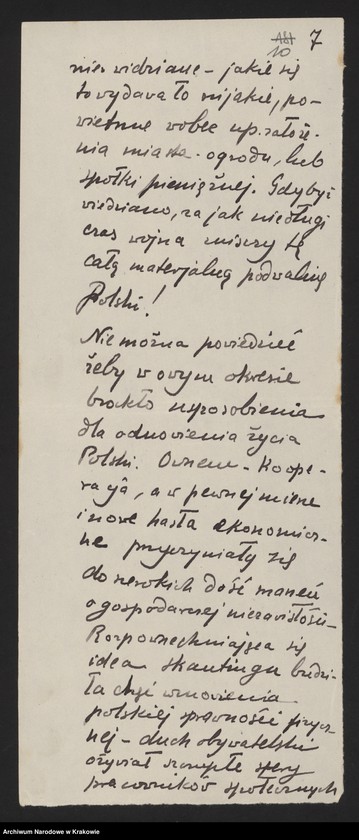 181
10
7
nie widziane - jakie się
to wydawało nijakie, po-
wietrzne wobec np. założe-
nia miasta-ogrodu, lub
spółki pieniężnej. Gdybyż
wiedziano, za jak niedługi
czas wojna zniszczy tę
całą materjalną podwalinę
Polski!
Nie można powiedzieć
żeby w owym okresie
brakło usposobienia
dla odnowienia życia
Polski. Owszem - Koope-
racja, a w pewnej mierze
i nowe hasła ekonomicz-
ne przyczyniały się
do szerokich dość marzeń
o gospodarczej niezawisłości -
Rozpowszechniająca się
idea skautingu budzi-
ła chęć wznowienia
polskiej sprawności fizycz-
nej - duch obywatelski
ożywiał szczupłe sfery
pracowników społecznych
Archiwum Narodowe w Krakowie